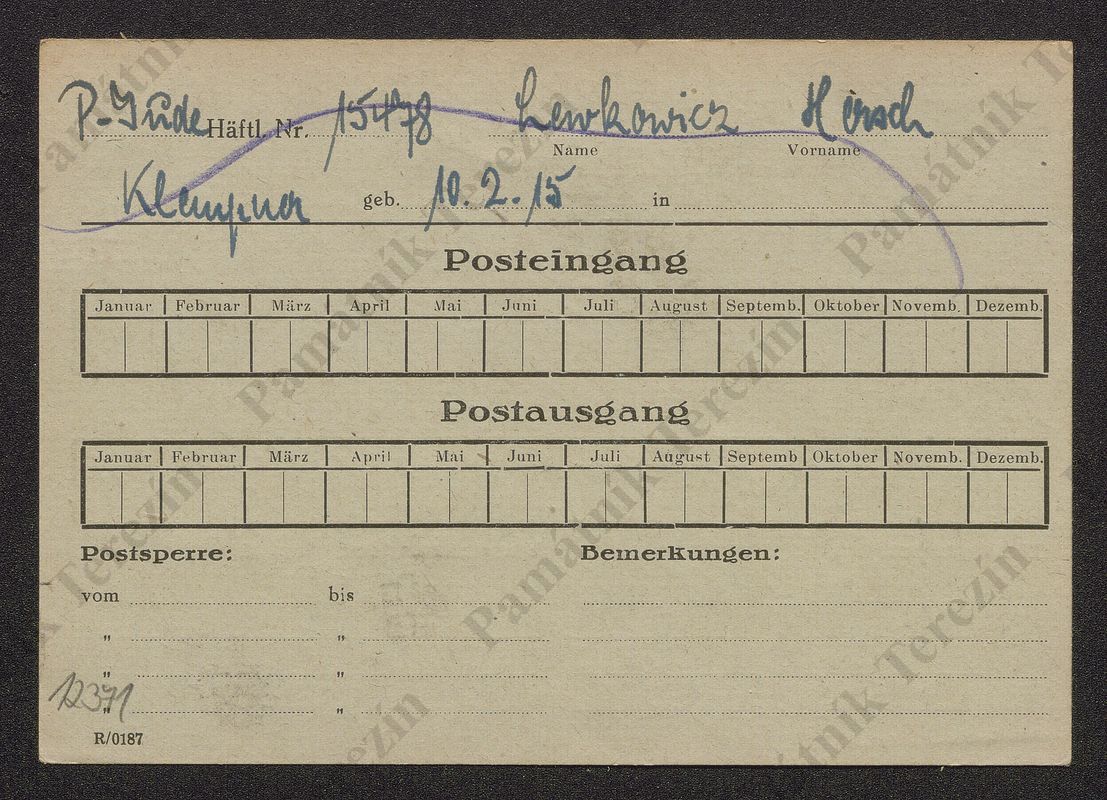 P-Jude Häftl. Nr. 15478 Lewkowicz Hersch
Name Vorname
Klempner geb. 10.2.15 in
Posteingang
Januar Februar März April Mai Juni Juli August Septemb. Oktober Novemb. Dezemb.
Postausgang
Januar Februar März April Mai Juni Juli August Septemb Oktober Novemb. Dezemb.
Postsperre: Bemerkungen:
vom bis
" "
" "
" "
12371
R/0187
Památník Terezín